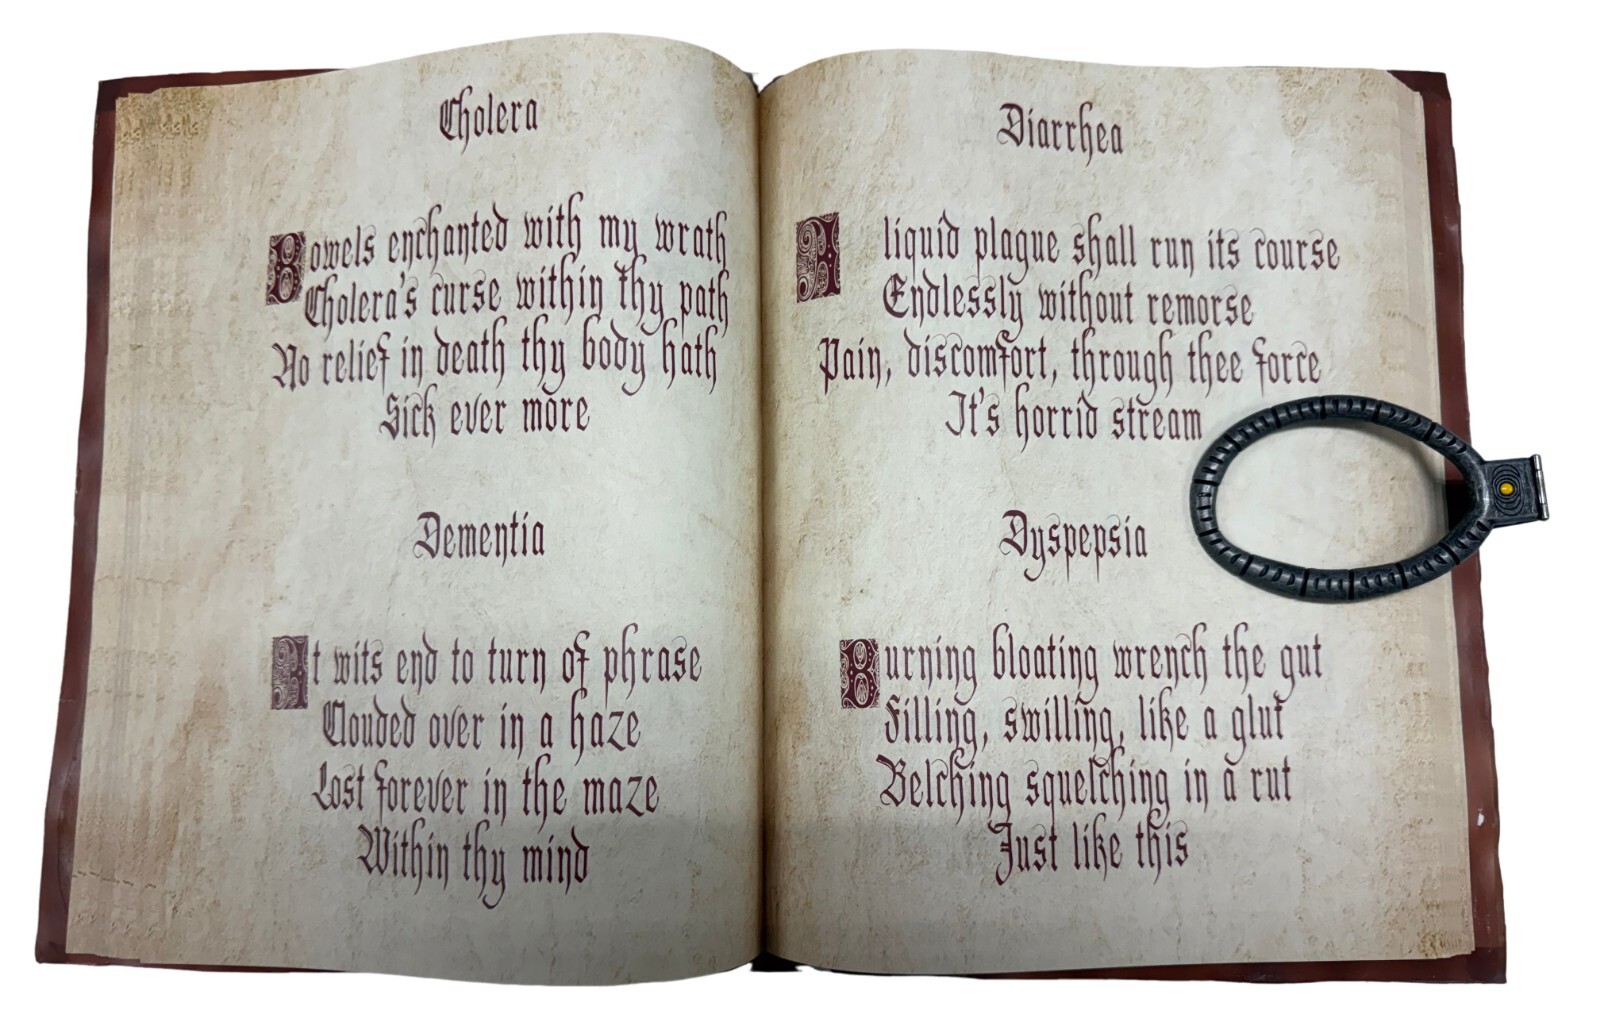 Cholera
Bowels enchanted with my wrath
Cholera's curse within thy path
No relief in death thy body hath
Sick ever more
Dementia
At wits end to turn of phrase
Clouded over in a haze
Lost forever in the maze
Within thy mind
Diarrhea
A liquid plague shall run its course
Endlessly without remorse
Pain, discomfort, through thee force
It's horrid stream
Dyspepsia
Burning bloating wrench the gut
Filling, swilling, like a glut
Belching squelching in a rut
Just like this